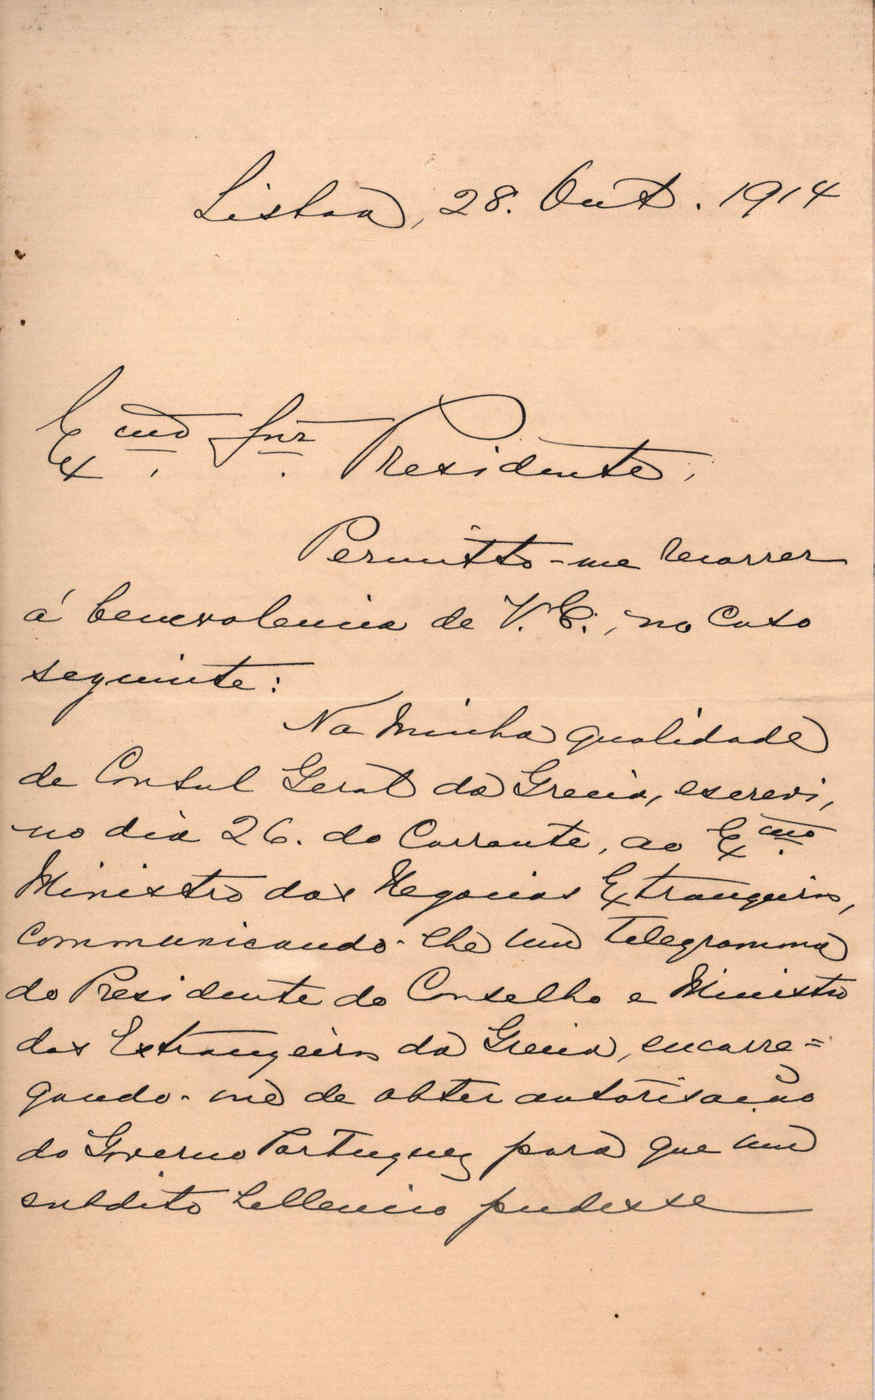 Lisboa, 28. Out. 1914
Exmo. Snr. Presidente,
Permitto-me recorrer
á benevolencia de V. E., no caso
seguinte:
Na minha qualidade
de Consul Geral da Grecia, escrevi,
no dia 26. do corrente, ao Exmo.
Ministro dos Negocios Extrangeiros,
communicando-lhe um telegramma
do Presidente do Conselho e Ministro
dos Extrangeiros da Grecia, encarre=
gando-me de obter autorisação
do Governo Portuguez para que um
subdito hellenico pudesse